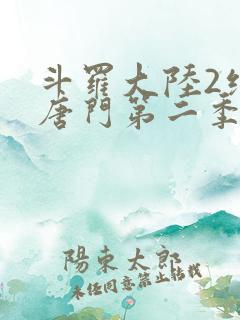 斗羅大陸2
唐門第二季
陽東太郎
未經同意禁止轉載